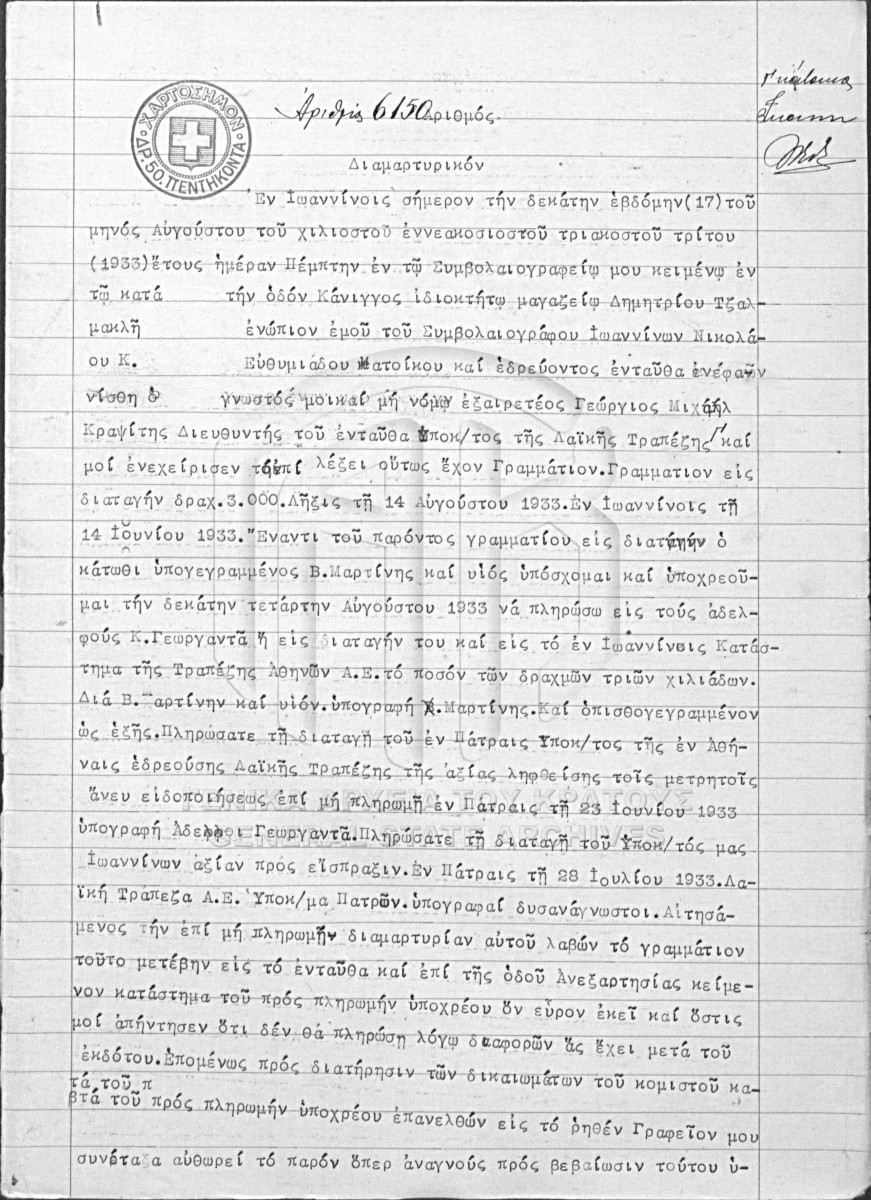 1
ΧΑΡΤΟΣΗΜΟΝ
ΔΡ. 50. ΠΕΝΤΗΚΟΝΤΑ
Ἀριθμὸς 6150 Αριθμός.
Διαμαρτυρικόν
Ἐν Ἰωαννίνοις σήμερον τήν δεκάτην ἑβδόμην(17)τοῦ
μηνός Αὐγούστου τοῦ χιλιοστοῦ ἐννεακοσιοστοῦ τριακοστοῦ τρίτου
(1933)ἔτους ἡμέραν Πέμπτην ἐν τῷ Συμβολαιογραφείῳ μου κειμένῳ ἐν
τῷ κατά τήν ὁδόν Κάνιγγος ἰδιοκτήτῳ μαγαζείῳ Δημητρίου Τζαλ-
μακλῆ ἐνώπιον ἐμοῦ τοῦ Συμβολαιογράφου Ἰωαννίνων Νικολά-
ου Κ. Εὐθυμιάδου κατοίκου καί ἑδρεύοντος ἐνταῦθα ἐνεφα
νίσθη ὁ γνωστός μοι καί μή νόμῳ ἐξαιρετέος Γεώργιος Μιχαήλ
Κραψίτης Διευθυντής τοῦ ἐνταῦθα Ὑποκ/τος τῆς Λαϊκῆς Τραπέζης καί
μοί ἐνεχείρισεν τό ἐπί λέξει οὕτως ἔχον Γραμμάτιον.Γραμματιον εἰς
διαταγήν δραχ.3.000.Λῆξις τῇ 14 Αὐγούστου 1933.Ἐν Ἰωαννίνοις τῇ
14 Ἰουνίου 1933."Εναντι τοῦ παρόντος γραμματίου εἰς διαταγήν ὁ
κάτωθι ὑπογεγραμμένος Β.Μαρτίνης καί υἱός ὑπόσχομαι καί ὑποχρεοῦ-
μαι τήν δεκάτην τετάρτην Αὐγούστου 1933 νά πληρώσω εἰς τούς ἀδελ-
φούς Κ.Γεωργαντᾶ ἤ εἰς διαταγήν του καί εἰς τό ἐν Ἰωαννίνοις Κατάσ-
τημα τῆς Τραπέζης Ἀθηνῶν Α.Ε.τό ποσόν τῶν δραχμῶν τριῶν χιλιάδων.
Διά Β.Μαρτίνην καί υἱόν.ὑπογραφή Β.Μαρτίνης.Καί ὀπισθογεγραμμένον
ὡς ἑξῆς.Πληρώσατε τῇ διαταγῇ τοῦ ἐν Πάτραις Ὑποκ/τος τῆς ἐν Ἀθή-
ναις ἑδρεούσης Λαϊκῆς Τραπέζης τῆς ἀξίας ληφθείσης τοῖς μετρητοῖς
ἄνευ εἰδοποιήσεως ἐπί μή πληρωμῇ ἐν Πάτραις τῇ 23 Ἰουνίου 1933
ὑπογραφή Ἀδελφοι Γεωργαντᾶ.Πληρώσατε τῇ διαταγῇ τοῦ Ὑποκ/τός μας
Ἰωαννίνων ἀξίαν πρός εἴσπραξιν.Ἐν Πάτραις τῇ 28 Ἰουλίου 1933.Λα-
ϊκή Τράπεζα Α.Ε.Ὑποκ/μα Πατρῶν.ὑπογραφαί δυσανάγνωστοι.Αἰτησά-
μενος τήν ἐπί μή πληρωμῇ διαμαρτυρίαν αὐτοῦ λαβών τό γραμμάτιον
τοῦτο μετέβην εἰς τό ἐνταῦθα καί ἐπί τῆς ὁδοῦ Ἀνεξαρτησίας κείμε-
νον κατάστημα τοῦ πρός πληρωμήν ὑποχρέου ὅν εὗρον ἐκεῖ καί ὅστις
μοί ἀπήντησεν ὅτι δέν θά πληρώσῃ λόγῳ διαφορῶν ἅς ἔχει μετά τοῦ
ἐκδότου.Ἑπομένως πρός διατήρησιν τῶν δικαιωμάτων τοῦ κομιστοῦ κα-
τά τοῦ π
βτά τοῦ πρός πληρωμήν ὑποχρέου ἐπανελθών εἰς τό ῥηθέν Γραφεῖον μου
συνέταξα αὐθωρεί τό παρόν ὅπερ ἀναγνούς πρός βεβαίωσιν τούτου ὑ-
ΓΕΝΙΚΑ ΑΡΧΕΙΑ ΤΟΥ ΚΡΑΤΟΥΣ
GENERAL STATE ARCHIVES